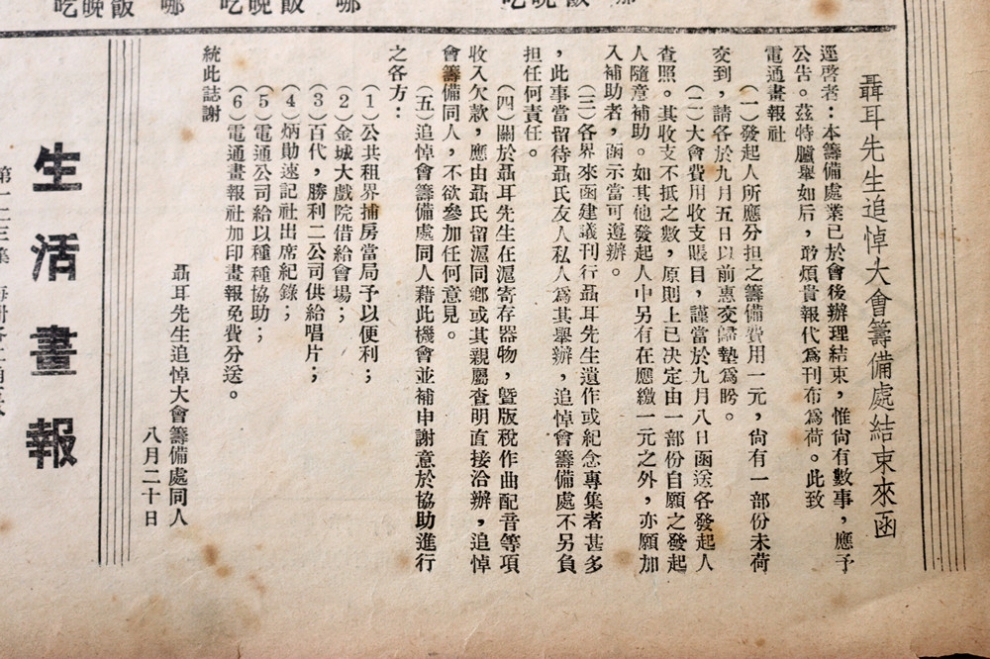 吃晚飯　哪
吃晚飯　哪
聶耳先生追悼大會籌備處結束來函
逕啓者：本籌備處業已於會後辦理結束，惟尙有數事，應予
公告。茲特臚舉如后，敢煩貴報代爲刊布爲荷。此致
電通畫報社
（一）發起人所應分担之籌備費用一元，尙有一部份未荷
交到，請各於九月五日以前惠交歸墊爲盼。
（二）大會費用收支賬目，謹當於九月八日函送各發起人
查照。其收支不抵之數，原則上已決定由一部份自願之發起
人隨意補助。如其他發起人中另有在應繳一元之外，亦願加
入補助者，函示當可遵辦。
（三）各界來函建議刊行聶耳先生遺作或紀念專集者甚多
，此事當留待聶氏友人私人爲其舉辦，追悼會籌備處不另負
担任何責任。
（四）關於聶耳先生在滬寄存器物，曁版稅作曲配音等項
收入欠款，應由聶氏留滬同鄕或其親屬查明直接洽辦，追悼
會籌備同人，不欲參加任何意見。
（五）追悼會籌備處同人藉此機會並補申謝意於協助進行
之各方：
（1）公共租界捕房當局予以便利；
（2）金城大戲院借給會場；
（3）百代，勝利二公司供給唱片；
（4）炳勛速記社出席紀錄；
（5）電通公司給以種種協助；
（6）電通畫報社加印畫報免費分送。
統此誌謝
聶耳先生追悼大會籌備處同人
八月二十日
生活畫報